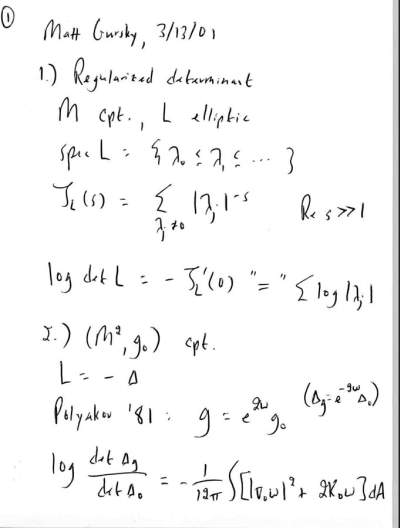 ①
Matt Gursky, 3/13/01
1.) Regularized determinant
M cpt., L elliptic
spec L = { λ₀ ≤ λ₁ ≤ ... }
ζ_L(s) = Σ_{λ_j ≠ 0} |λ_j|^{-s} Re s >> 1
log det L = - ζ_L'(0) "=" Σ log |λ_j|
2.) (M², g₀) cpt.
L = - Δ
Polyakov '81 : g = e^{2w} g₀ (Δ_g = e^{-2w} Δ₀)
log det Δ_g / det Δ₀ = - 1/12π ∫ [|∇₀w|² + 2K₀w] dA